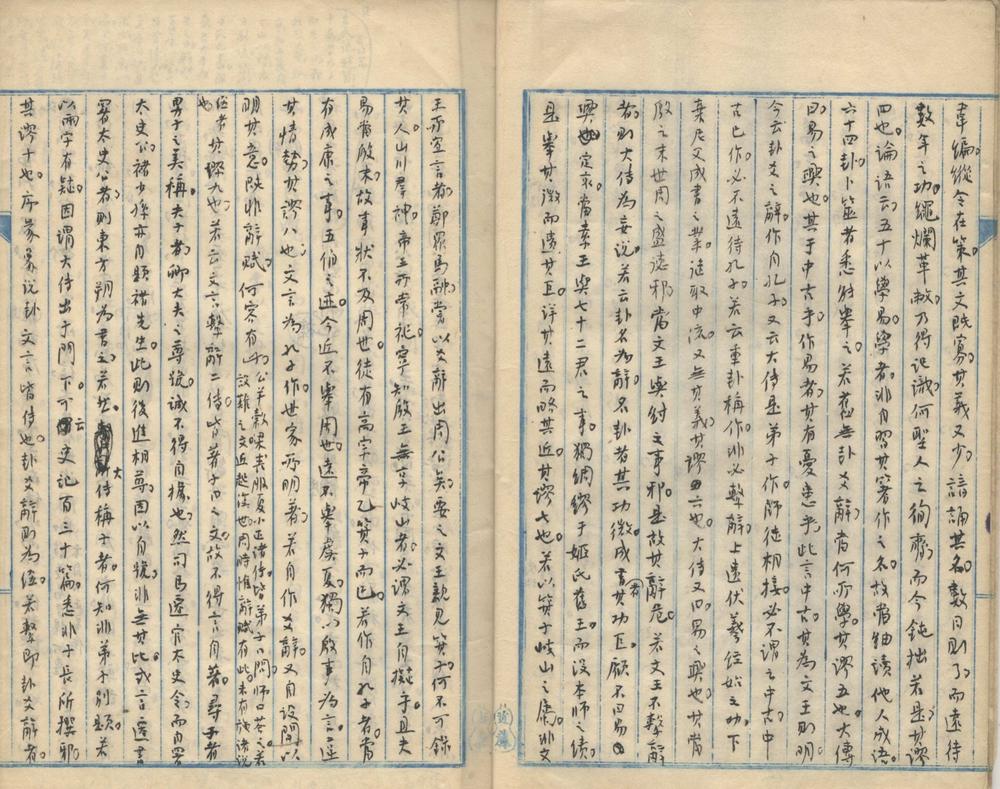 韋編縱令在策其文旣寡其義又少諳誦其名數日則了而遠待
數年之功繩爛革敝乃得記識何聖人之徇齊而今鈍拙若是其謬
四也論語云五十以學易學者非自習其箸作之名故當紬讀他人成語
六十四卦卜筮者悉能舉之若舊無卦爻辭者何所學其謬五也大傳
曰易之興也其于中古乎作易者其有憂患乎此言中古其為文王則明
今云卦爻之辭作自孔子又云大傳是弟子作師徒相接必不謂之中古中
古已作必不遠待孔子若云重卦稱作非必繫辭上遺伏羲經始之功下
棄尼父成書之業進取中流又無其義其謬六也大傳又曰易之興也其當
殷之末世周之盛德邪當文王與紂之事邪是故其辭危若文王不繫辭
者則大傳為妄說若云卦名為辭名卦者其功微成書者其功巨顧不曰易
興也定哀當素王與七十二君之事獨綢繆于姬氏舊王而沒本師之績
是舉其微而遺其巨詳其遠而略其近其謬七也若以箕子岐山之屬非文
王所宜言者鄭眾馬融嘗以爻辭出周公矣要之文王親見箕子何不可錄
其人山川羣神帝王所常祀寧知殷王無享岐山者必謂文王自擬乎且夫
易當殷末故事狀不及周世徒有高宗帝乙箕子而已若作自孔子者當
有成康之事五伯之迹今近不舉周世遠不舉虞夏獨以殷事為言違
其情勢其謬八也文言為孔子作世家所明箸若自作爻辭又自設問以
明其意陜非辭賦何容有此公羊穀梁喪服夏小正諸傳皆弟子問師口荅之若
設難之文近起漢世周時惟辭賦有此未有施諸說
經者也其謬九也若云文言繫辭二傳皆著子曰之文故不得言自箸尋子者
男子之美稱夫子者卿大夫之尊號誠不得自據也然司馬遷官太史令而自署
太史公褚少孫亦自題褚先生此則後進相尊因以自號非無其比或言遷書
署太史公者則東方朔為書之若然大傳稱子者何知非弟子別題若
以兩字有疑因謂大傳出于門下可云史記百三十篇悉非子長所撰邪
其謬十也序彖象說卦文言皆傳也卦爻辭則為經若繫即卦爻辭者